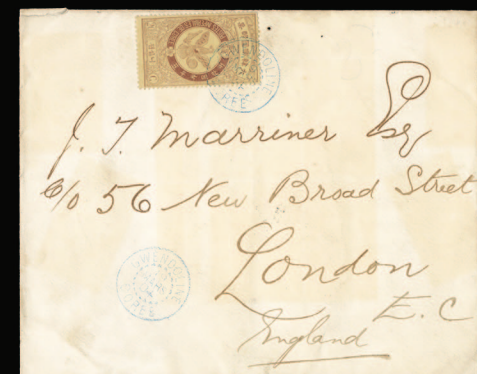 J. T. Marriner Esq
c/o 56 New Broad Street
London
E. C
England
GWENDOLINE